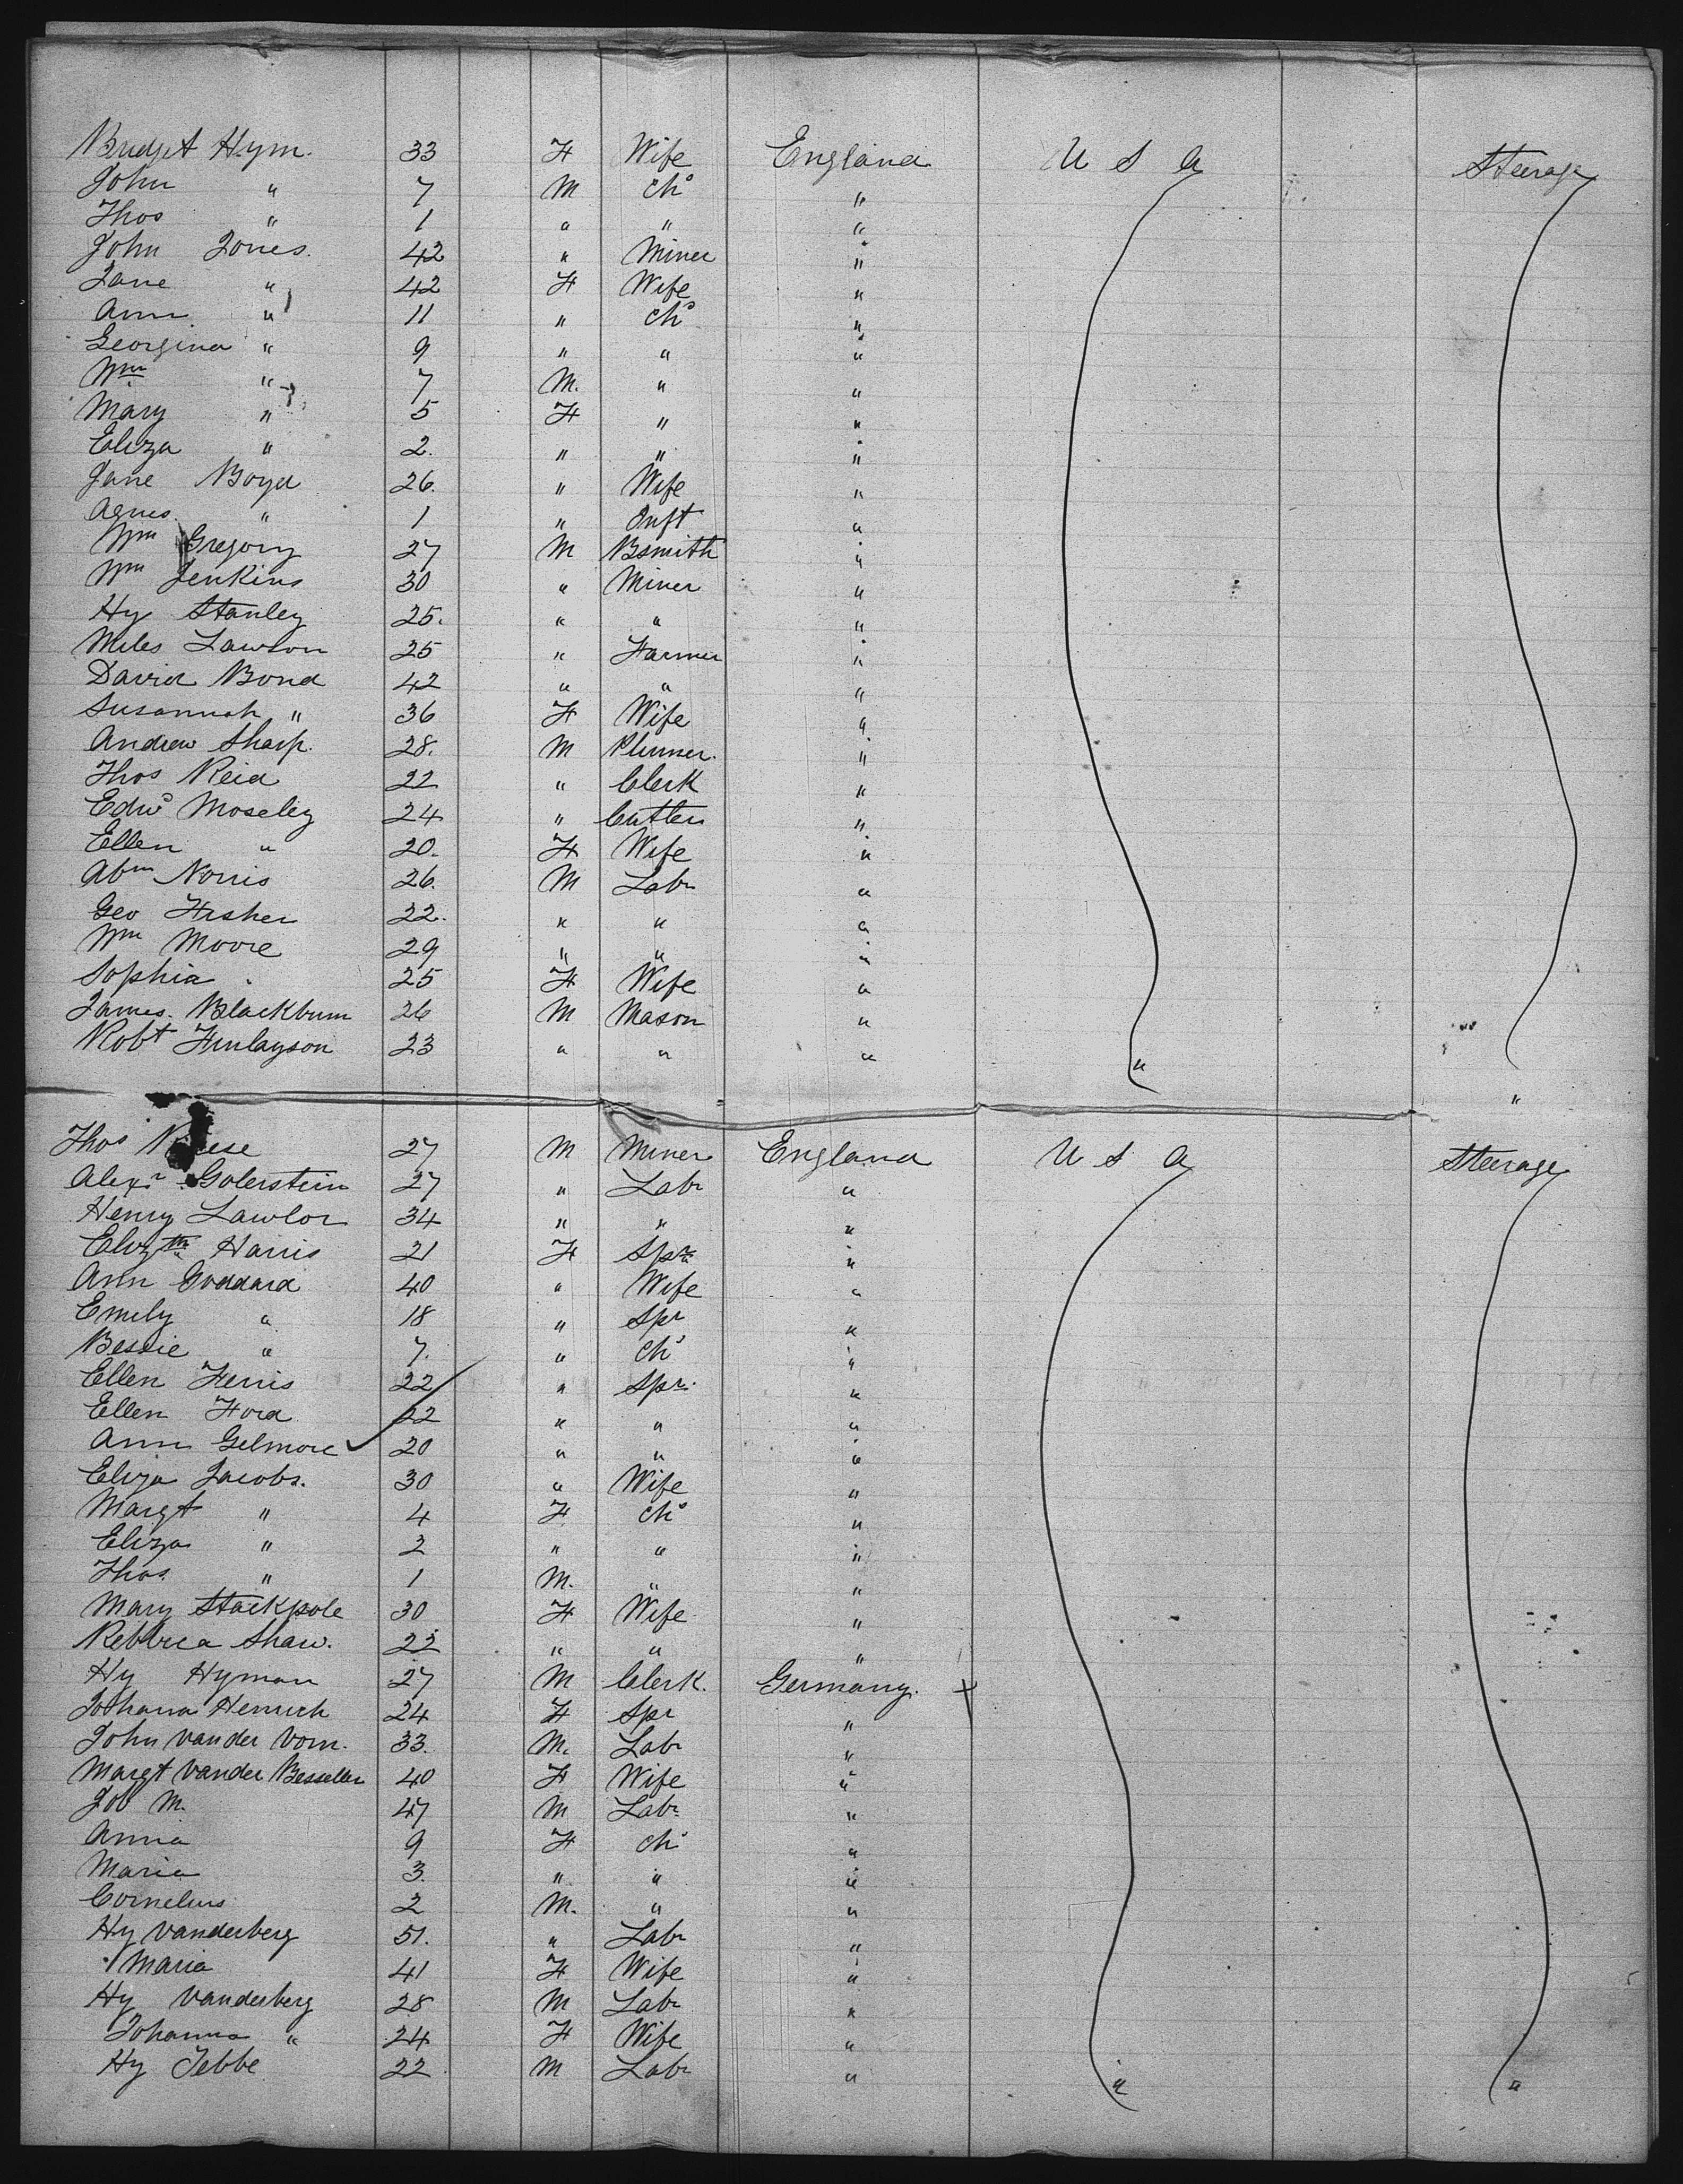 Bridget Hym. 33 F Wife England U S A Steerage
John " 7 M Chd "
Thos " 1 " " "
John Jones. 42 " Miner "
Jane " 42 F Wife "
Ann " 11 " Chd "
Georgina " 9 " " "
Wm " 7 M. " "
Mary " 5 F " "
Eliza " 2. " " "
Jane Boyd 26. " Wife "
Agnes " 1 " Inft "
Wm Gregory 27 M Bsmith "
Wm Jenkins 30 " Miner "
Hy Stanley 25. " " "
Miles Lawton 25 " Farmer "
David Bond 42 " " "
Susannah " 36 F Wife "
Andrew Sharp. 28. M Plumer. "
Thos Reid 22 " Clerk "
Edwd Moseley 24 " Cutler "
Ellen " 20. F Wife "
Abm Norris 26. M Labr "
Geo Fisher 22. " " "
Wm Moore 29 " " "
Sophia 25 F Wife "
James. Blackburn 26 M Mason "
Robt Finlayson 23 " " " " "
Thos 27 M Miner England U S A Steerage
Alexr Golerstein 27 " Labr "
Henry Lawlor 34 " " "
Elizth Harris 21 F Spr "
Ann Goddard 40 " Wife "
Emily " 18 " Spr "
Bessie " 7. " Chd "
Ellen Ferris 22 " Spr. "
Ellen Ford 22 " " "
Ann Gelmore 20 " " "
Eliza Jacobs. 30 " Wife "
Margt " 4 F Chd "
Eliza " 2 " " "
Thos. " 1 M. " "
Mary Stackpole 30 F Wife "
Rebbeca Shaw. 22 " " "
Hy Hyman 27 M Clerk. Germany. x
Johana Henrich 24 F Spr "
John vander Vom. 33. M. Labr "
Margt vander Besseller 40 F Wife "
Job M. 47 M Labr "
Anna 9 F Chd "
Maria 3. " " "
Cornelius 2 M. " "
Hy vanderberg 51. " Labr "
Maria 41 F Wife "
Hy Vanderberg 28 M Labr "
Johanna " 24 F Wife "
Hy Tebbe 22 M Labr " " "